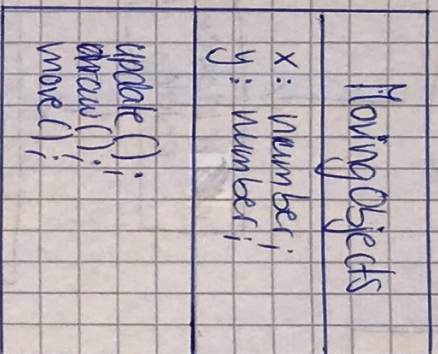 MovingObjects
x: number;
y: number;
update();
draw();
move();